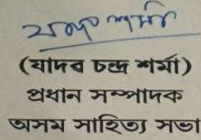 যাদৱ শৰ্মা
(যাদৱ চন্দ্ৰ শৰ্মা)
প্ৰধান সম্পাদক
অসম সাহিত্য সভা